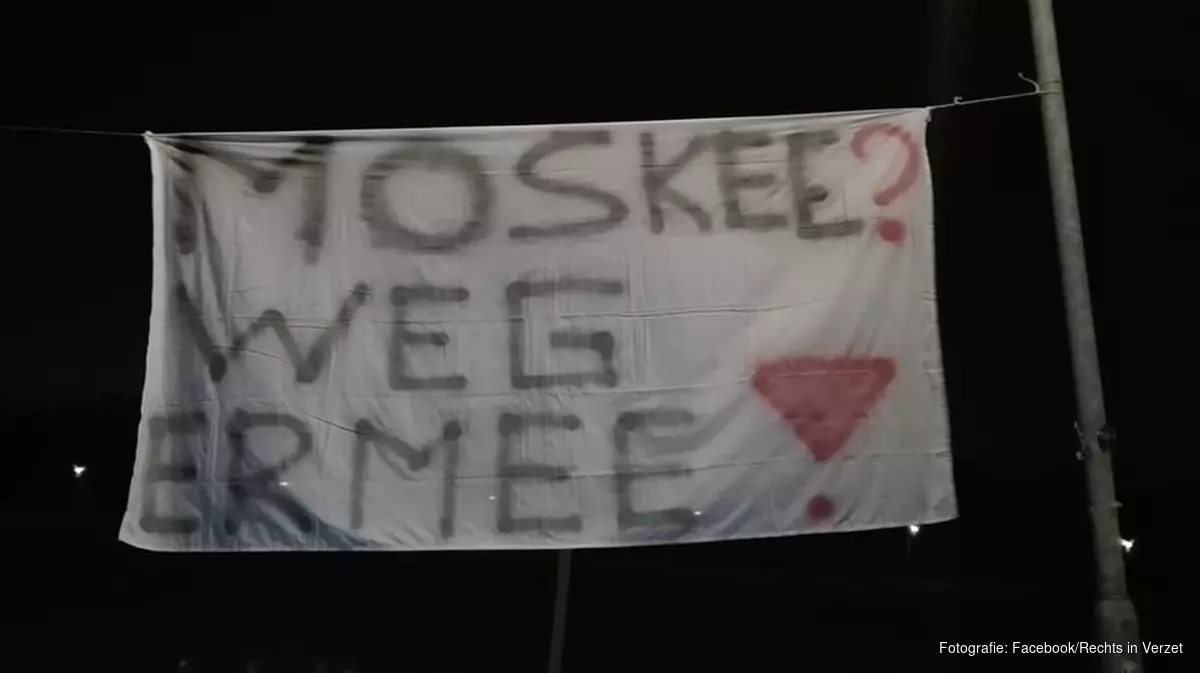 MOSKEE?
WEG
ERMEE!
Fotografie: Facebook/Rechts in Verzet